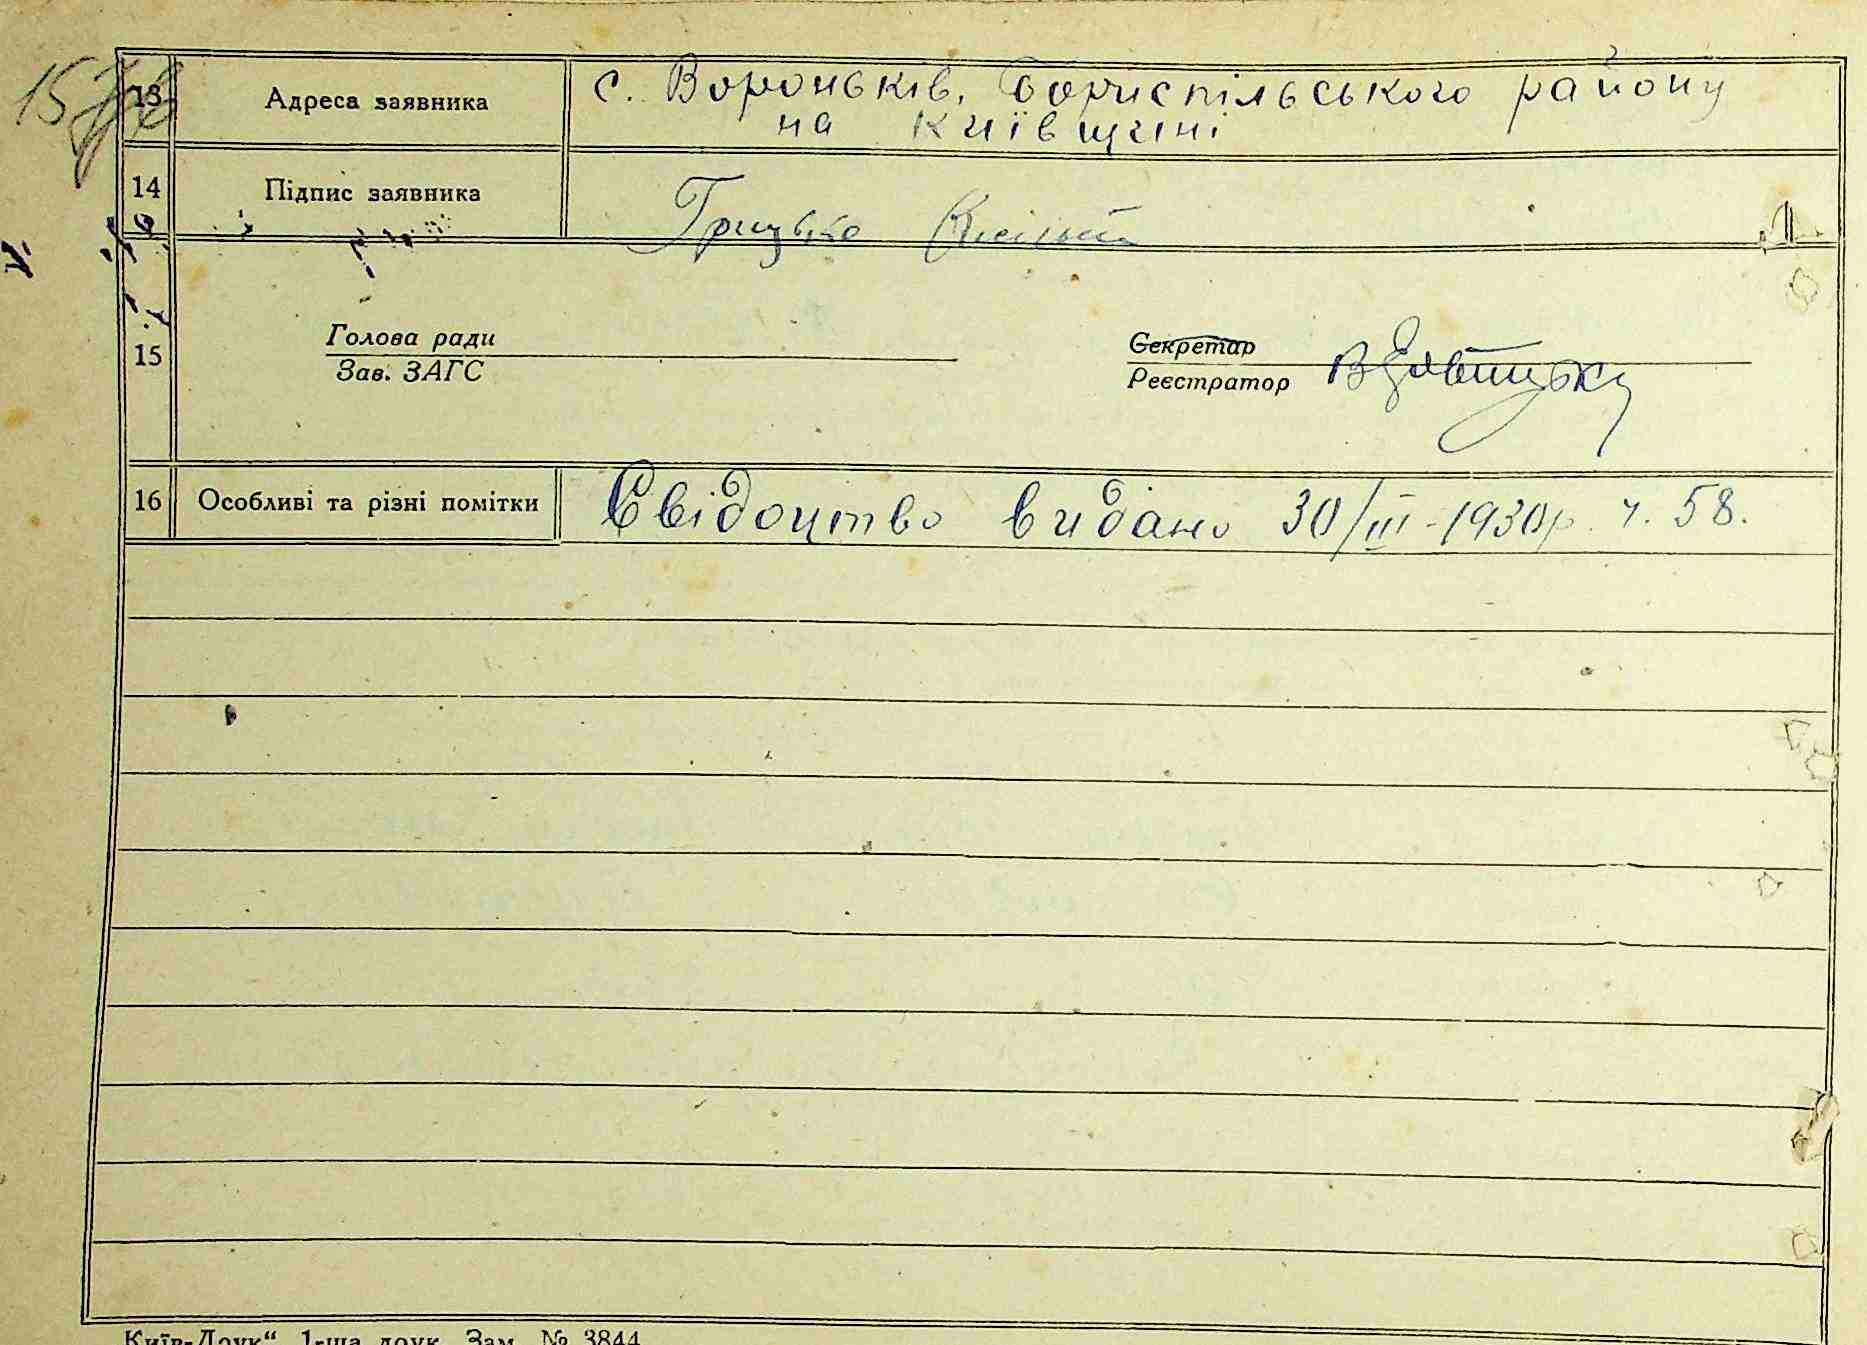 13 Адреса заявника с. Вороньків, Бориспільського району
на Київщині
14 Підпис заявника Грицько
15
Голова ради
Зав. ЗАГС
Секретар
Реєстратор
16 Особливі та різні помітки Свідоцтво видано 30/III-1930р. ч. 58.
Київ-Друк“ 1-ша друк. Зам. № 3844